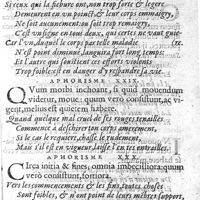 Si ceux qui la fiebure ont, non trop forte & legere
Demeurent en un poinct & leur corps emmaigry,
Ne soit aucunement ou soit trop remaigry,
C'est un signe en tous deux, qui certes ne vaut guie-
Car l'un, duquel le corps par telle maladie (re.
N'est point diminué, languira fort long temps:
Et l'autre qui soustient ces effortz violens
Trop foible est en danger d'y respandre la vie.
APHORISME XXIX.
QVum morbi inchoant, si quid mouendum
viderur, moue: quum verò consistunt, ac vi-
gent, melius est quietem habere.
Quand quelque mal cruel de ses rouges tenailles
Commence à deschirer ton corps amerement,
Si le cas le requiert, chasse le rudement,
Mais s'il est en vigueur, laisse l'en tes entrailles.
APHORISME XXX.
CIrca initia & fines, omnia imbecilliora: quum
verò consistunt, fortiora.
Vers les commencements & les fins, toutes choses
Sont foibles, & n'ont point de leurs mesmes support,